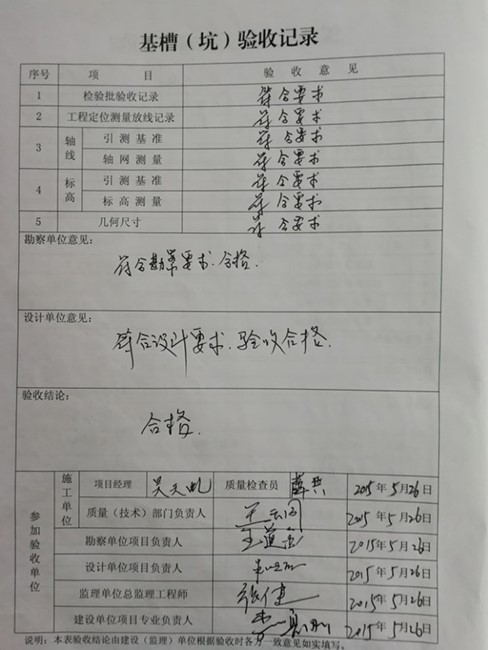 基槽（坑）验收记录
序号 项 目 验 收 意 见
1 检验批验收记录 符合要求
2 工程定位测量放线记录 符合要求
3 轴线 引 测 基 准 符合要求
轴 网 测 量 符合要求
4 标高 引 测 基 准 符合要求
标 高 测 量 符合要求
5 几何尺寸 符合要求
勘察单位意见：
符合勘察要求.合格.
设计单位意见：
符合设计要求.验收合格.
验收结论：
合格.
参加验收单位 施工单位 项目经理 质量检查员 2015年5月26日
质量（技术）部门负责人 2015年5月26日
勘察单位项目负责人 2015年5月26日
设计单位项目负责人 2015年5月26日
监理单位总监理工程师 2015年5月26日
建设单位项目专业负责人 2015年5月26日
说明：本表验收结论由建设（监理）单位根据验收时各方一致意见如实填写。